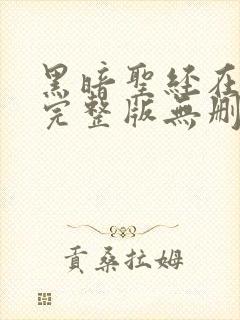 黑暗聖经在
完整版無删
貢桑拉姆